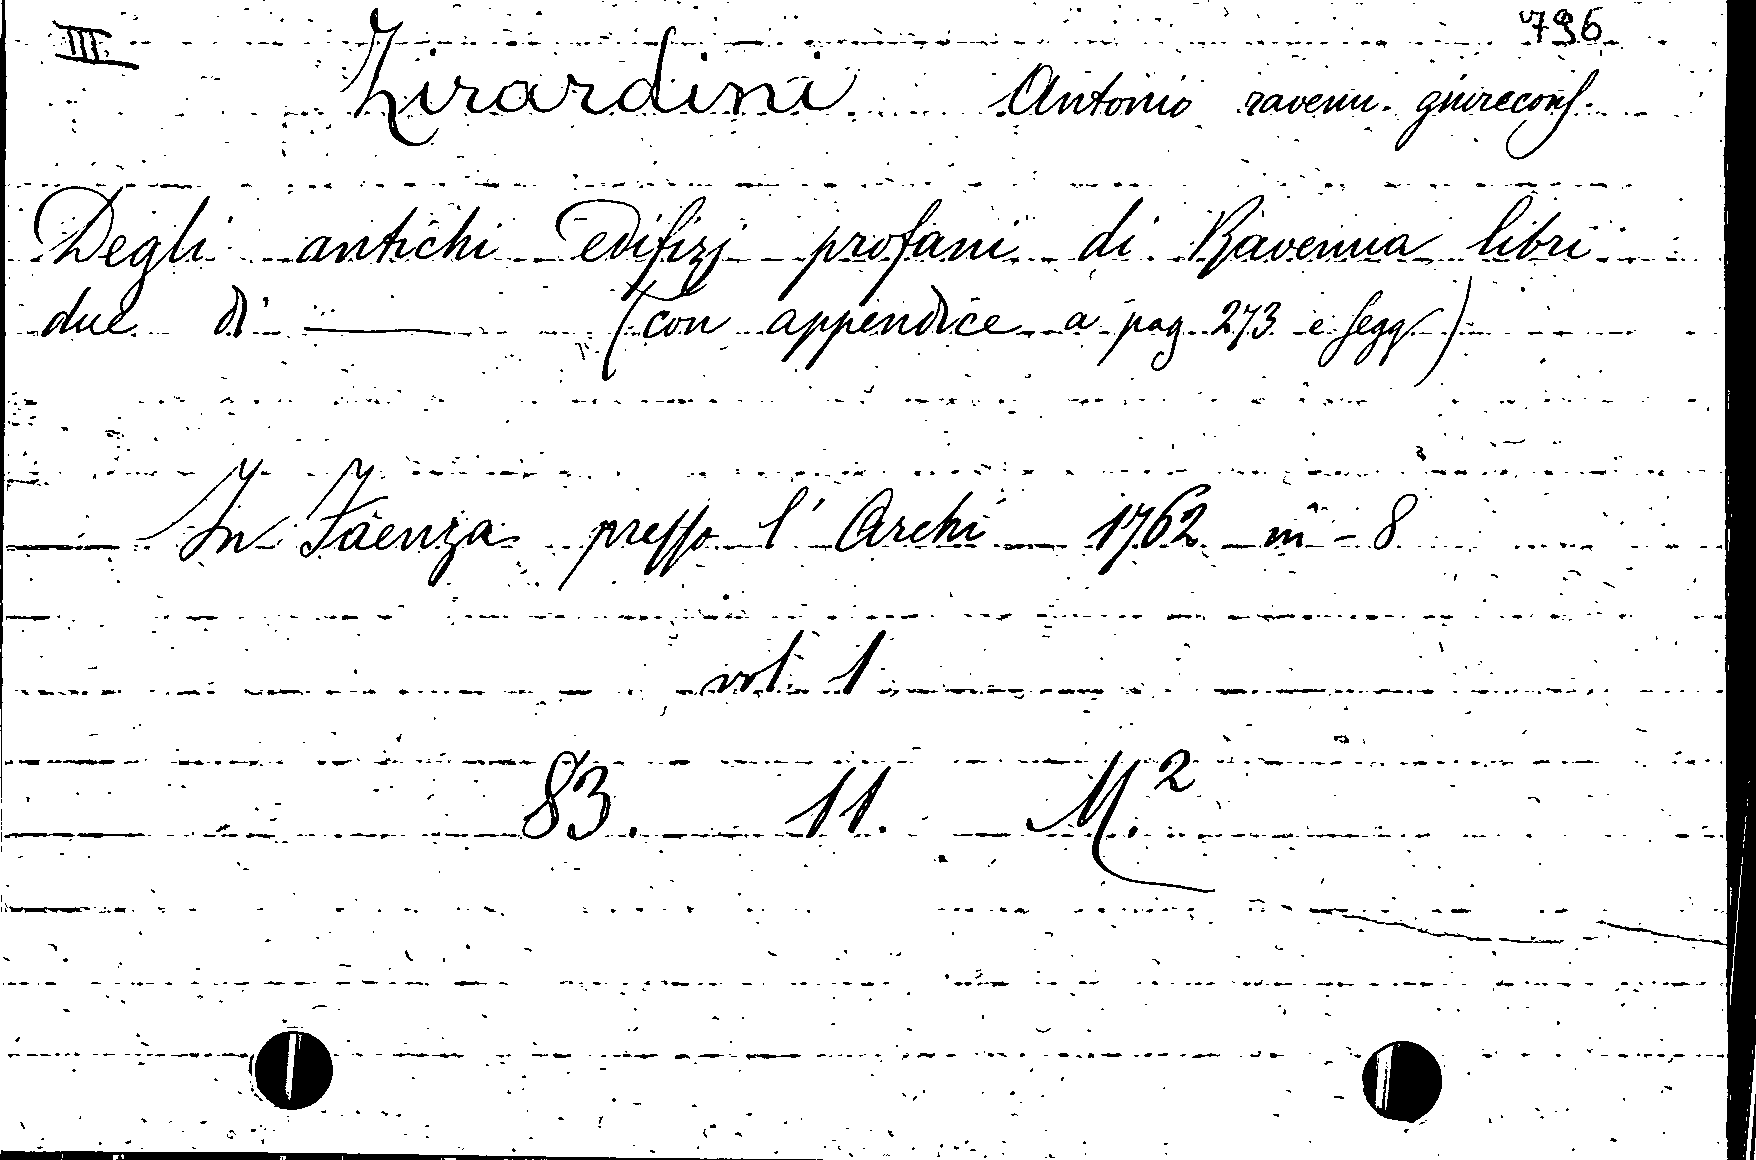 III 796
Zirardini Antonio ravenn. giurecons.
Degli antichi edifizj profani di Ravenna libri
due di ——— (con appendice a pag. 273 e segg.)
In Faenza presso l'Archi 1762 in-8
vol. 1
83. 11. M.2